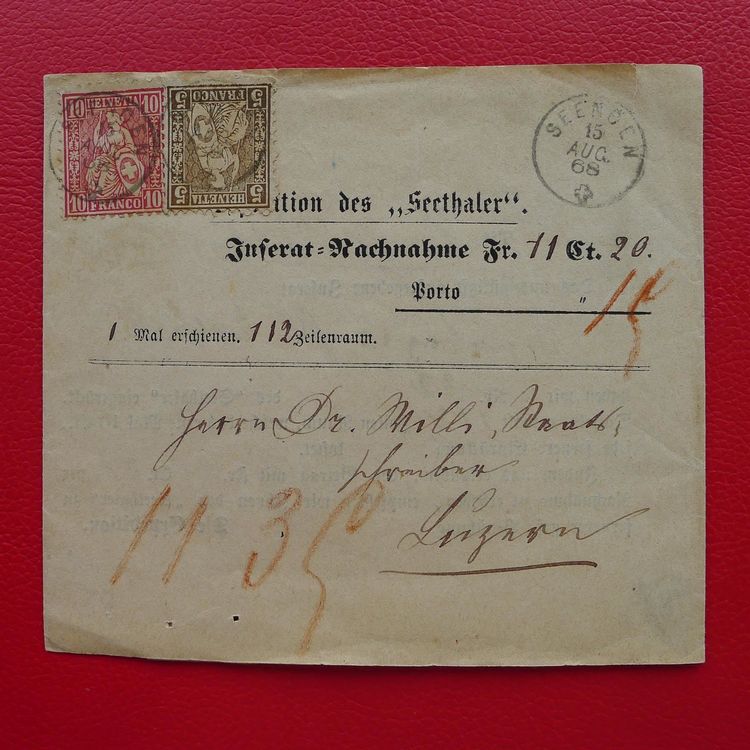 10 HELVETIA 10
10 FRANCO 10
5 FRANCO 5
5 HELVETIA 5
SEENGEN
15
AUG.
68
des „Seethaler“.
Inserat=Nachnahme Fr. 11 Ct. 20.
Porto „ 15
1 Mal erschienen. 112 Zeilenraum.
Herrn Dr. Willi, Staats-
schreiber
Luzern
11 35